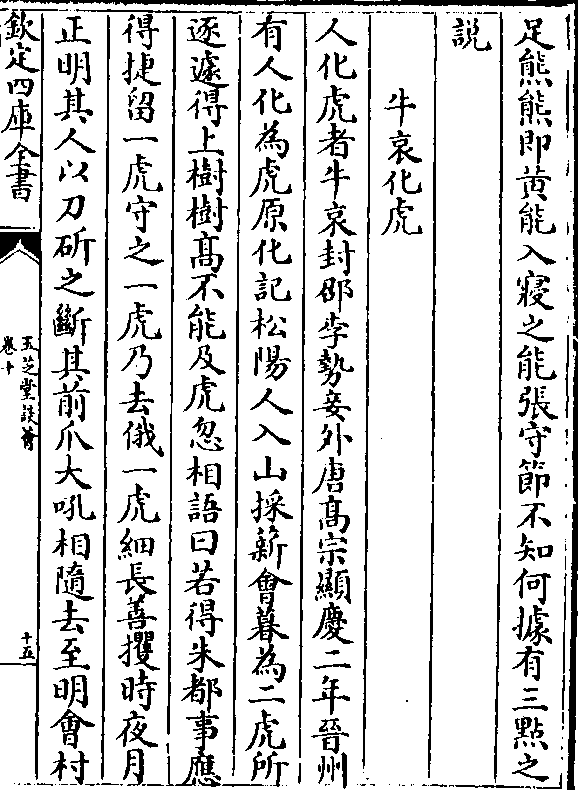 足熊熊即黄能入寢之能張守節不知何據有三點之
説
牛哀化虎
人化虎者牛哀封邵李勢妾外唐髙宗顯慶二年晉州
有人化為虎原化記松陽人入山採薪會暮為二虎所
逐遽得上樹樹髙不能及虎忽相語曰若得朱都事應
得捷留一虎守之一虎乃去俄一虎細長善攫時夜月
正明其人以刀斫之斷其前爪大吼相隨去至明會村
欽定四庫全書
玉芝堂談薈
卷十
十五